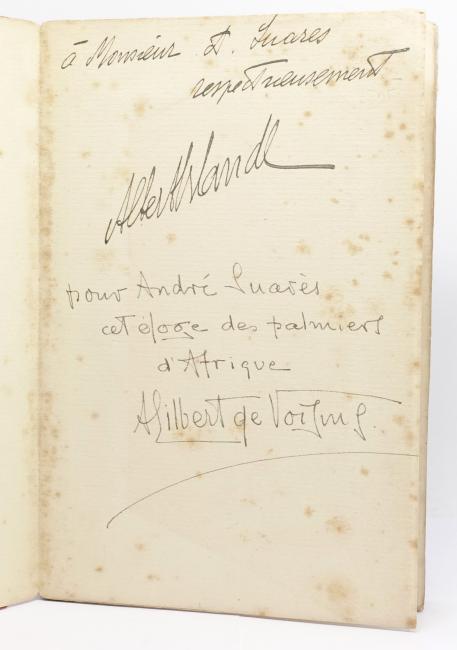 à Monsieur A. Suares
respectueusement
Albert Erlande
pour André Suarès
cet éloge des palmiers
d'Afrique
A Gilbert de Voisins